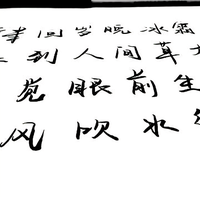 律回岁晚冰霜
到人间草
觉眼前生
风吹水